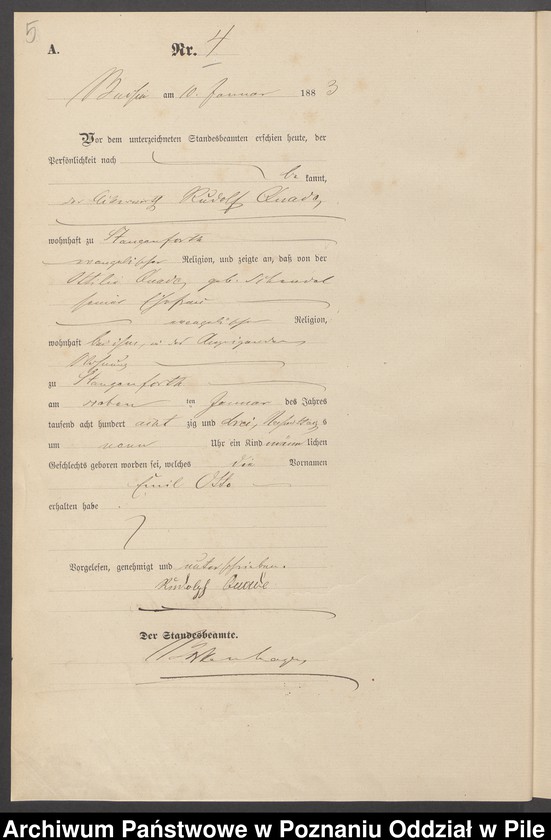 5
A. Nr. 4
am 10. Januar 1883
Vor dem unterzeichneten Standesbeamten erschien heute, der
Persönlichkeit nach
be kannt,
der Rudolf Quade,
wohnhaft zu Stangenforth
evangelischer Religion, und zeigte an, daß von der
Ottilie Quade, geb.
seiner Ehefrau
evangelischer Religion,
wohnhaft bei ihm, in der
Wohnung
zu Stangenforth
am sieben ten Januar des Jahres
tausend acht hundert acht zig und drei, Vormittags
um neun Uhr ein Kind männ lichen
Geschlechts geboren worden sei, welches die Vornamen
Emil Otto
erhalten habe
Vorgelesen, genehmigt und unterschrieben.
Rudolph Quade
Der Standesbeamte.
Archiwum Państwowe w Poznaniu Oddział w Pile